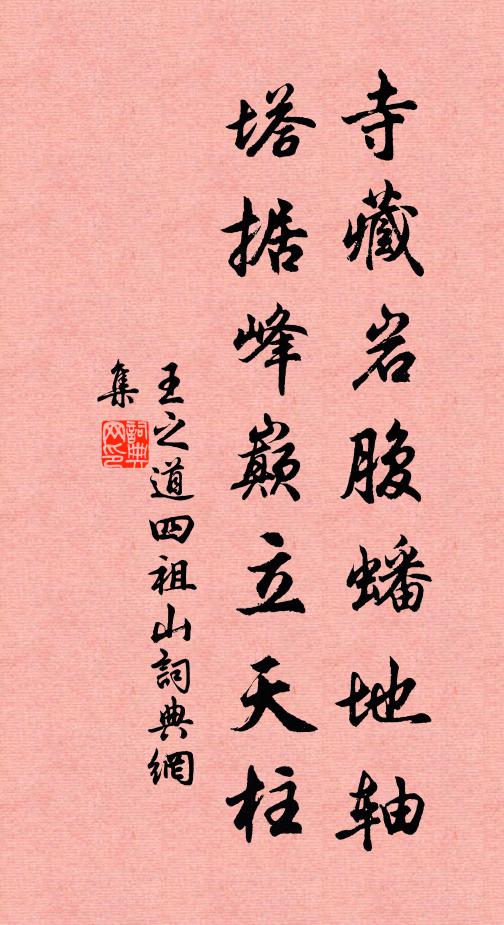 寺藏岩腹蟠地轴
塔据峰巅立天柱
王之道四祖山詞典網
集
詞典網印